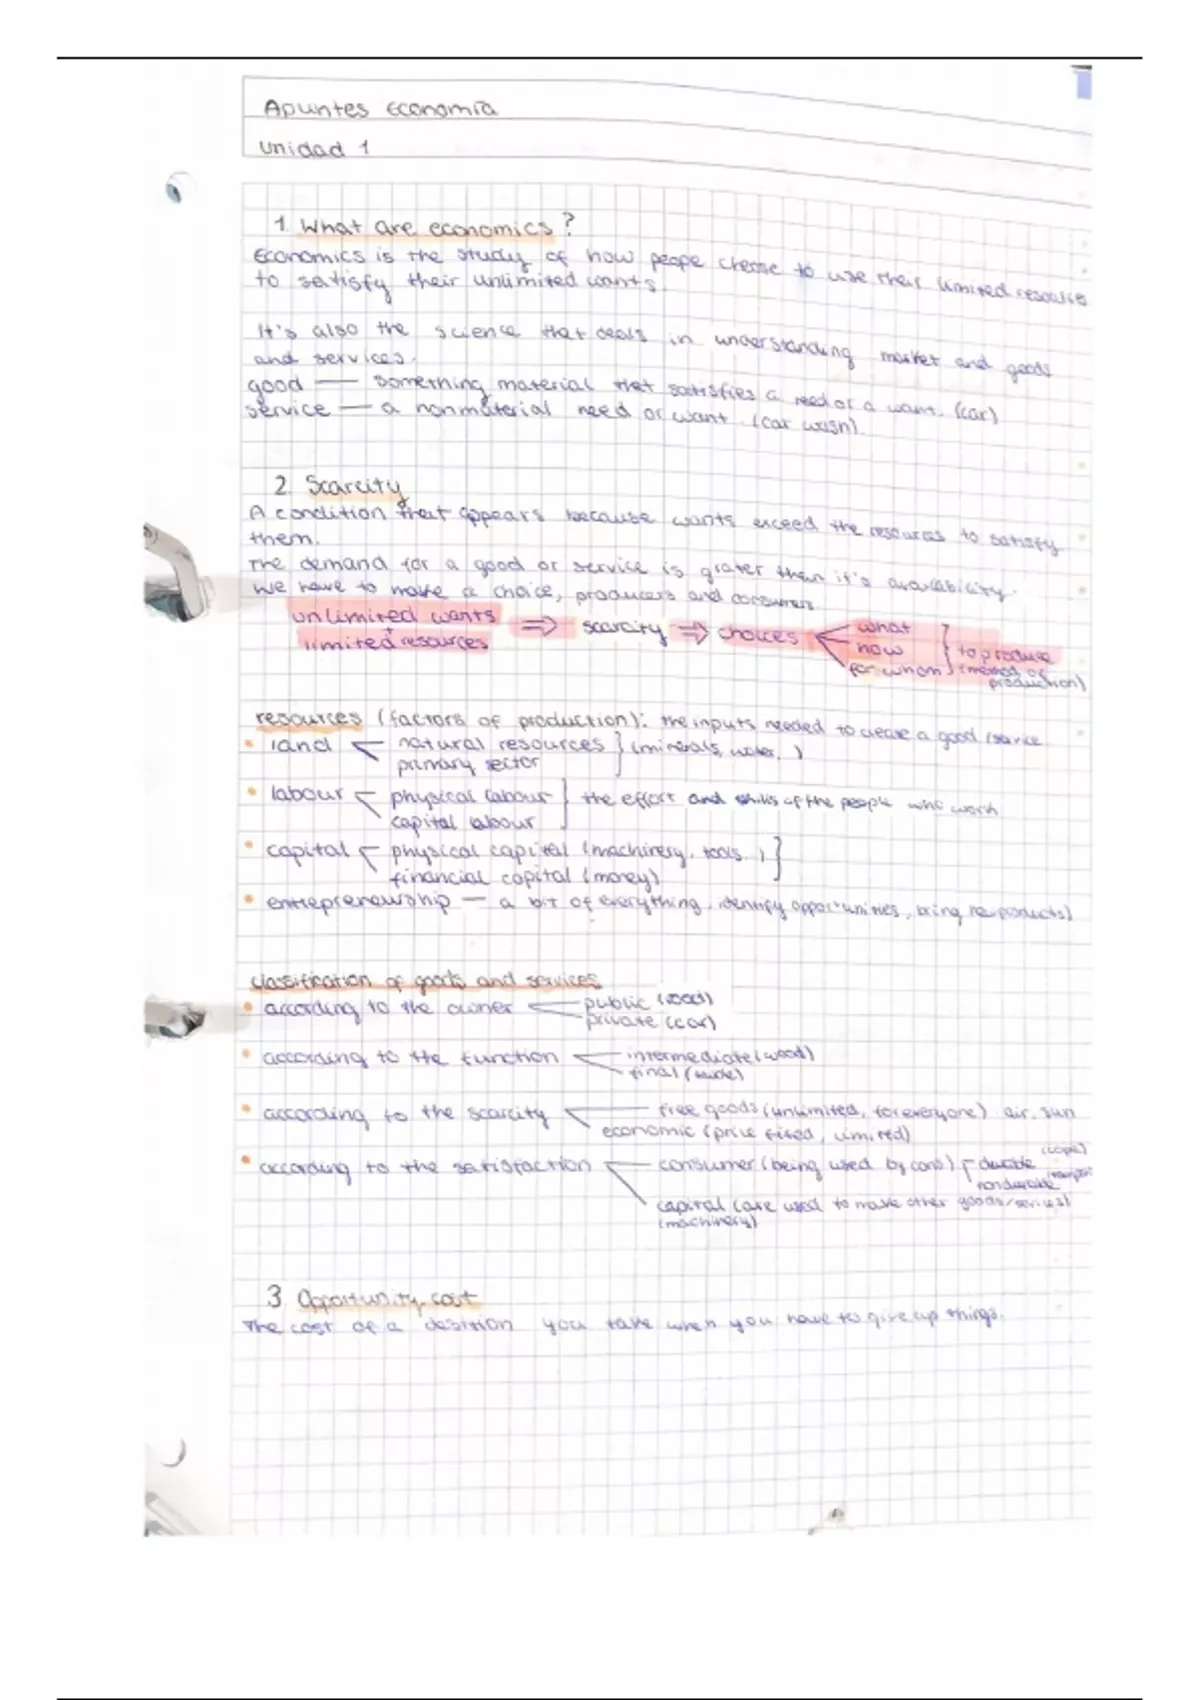 Apuntes Economía
Unidad 1
1. What are economics?
Economics is the study of how peope choose to use their limited resources
to satisfy their unlimited wants.
It's also the science that deals in understanding market and goods
and services.
good — something material that satisfies a need or a want. (car)
service — a nonmaterial need or want. (car wash)
2. Scarcity
A condition that appears because wants exceed the resources to satisfy
them.
The demand for a good or service is grater then it's availability.
We have to make a choice, producers and consumers
unlimited wants + limited resources ⇒ scarcity ⇒ choices
what
how
for whom
to produce
(method of
production)
resources (factors of production): the inputs needed to create a good/service
• land natural resources (minerals, water, )
primary sector
• labour physical labour the effort and skills of the people who work
capital labour
• capital physical capital (machinery, tools. )
financial capital (money)
• entrepreneurship — a bit of everything, identify opportunities, bring products)
classification of goods and services
• according to the owner public (road)
private (car)
• according to the function intermediate (wood)
final
• according to the scarcity free goods (unlimited, for everyone) air, sun
economic (price fixed, limited)
• according to the satisfaction consumer (being used by cons) durable
nondurable
capital (are used to make other goods/services)
(machinery)
3. Opportunity cost
The cost of a desition you take when you have to give up things.